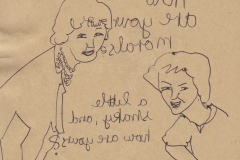 how
are your
morals?
a little
shaky, and
how are yours?